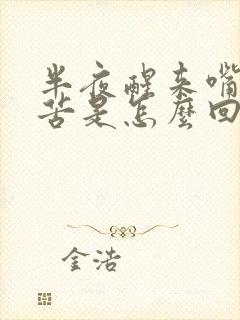 半夜醒来嘴
苦是怎麼回
金浩